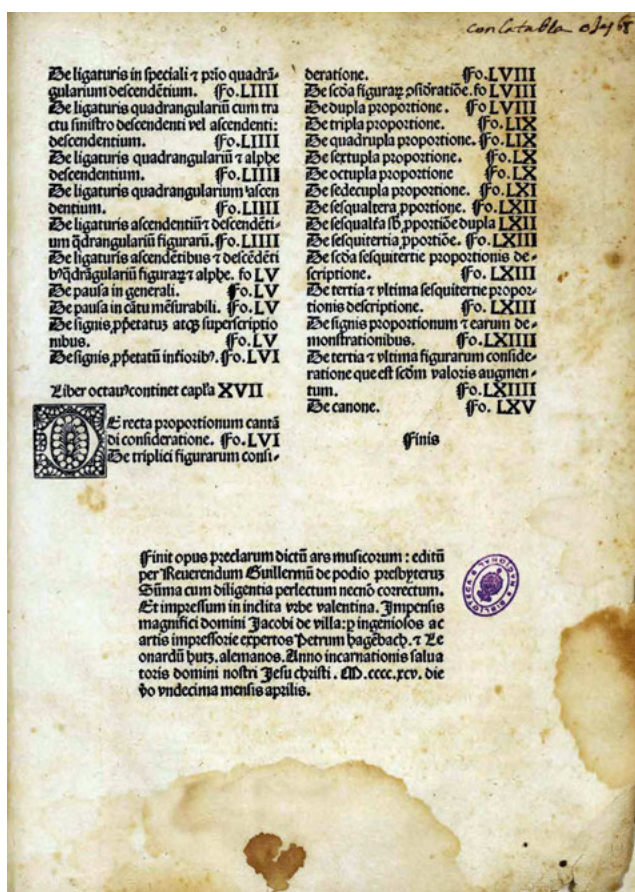 con la tabla
De ligaturis in speciali ⁊ p̄io quadrā⸗
gularium descendētium. Fo.LIIII
De ligaturis quadrangulariū cum tra
ctu sinistro descendenti vel ascendenti:
descendentium. Fo.LIIII
De ligaturis quadrangulariū ⁊ alphe
descendentium. Fo.LIIII
De ligaturis quadrangularium ascen
dentium. Fo.LIIII
De ligaturis ascendentiū ⁊ descendēti⸗
um q̄drangulariū figurarū. Fo.LIIII
De ligaturis ascendētibus ⁊ descēdēti
bꝰ q̄drāgulariū figuraꝝ ⁊ alphe. fo LV
De pausa in generali. Fo.LV
De pausa in cātu mēsurabili. Fo.LV
De signis ꝓpetatuꝫ atqꝫ superscriptio
nibus. Fo.LV
De signis ꝓpetatū inf̄iorib⁹. Fo.LVI
Liber octauꝰ continet capl̄a XVII
DE recta proportionum cantā
di consideratione. Fo.LVI
De triplici figurarum consi⸗
deratione. Fo.LVIII
De scd̄a figuraꝝ ꝯsid̄ratiōe. fo LVIII
De dupla proportione. Fo LVIII
De tripla proportione. Fo.LIX
De quadrupla proportione. Fo.LIX
De sextupla proportione. Fo.LX
De octupla proportione Fo.LX
De sedecupla proportione. Fo.LXI
De sesqualtera ꝓportione. Fo.LXII
De sesqualt̄a sb̄ ꝓportiōe dupla LXII
De sesquitertia ꝓportiōe. Fo.LXIII
De scd̄a sesquitertie proportionis de⸗
scriptione. Fo.LXIII
De tertia ⁊ vltima sesquitertie propor⸗
tionis descriptione. Fo.LXIII
De signis proportionum ⁊ earum de⸗
monstrationibus. Fo.LXIIII
De tertia ⁊ vltima figurarum conside⸗
ratione que est scd̄m valoris augmen⸗
tum. Fo.LXIIII
De canone. Fo. LXV
Finis
Finit opus preclarum dictū ars musicorum : editū
per Reuerendum Guillermū de podio presbyteruꝫ
Sūma cum diligentia perlectum necnō correctum.
Et impressum in inclita vrbe valentina. Impensis
magnifici domini Jacobi de villa: ꝑ ingeniosos ac
artis impressorie expertos Petrum hagēbach. ⁊ Le
onardū hutꝫ. alemanos. Anno incarnationis salua
toris domini nostri Jesu christi. M.cccc.xcv. die
v̄o vndecima mensis aprilis.
BIBLIOTECA NACIONAL